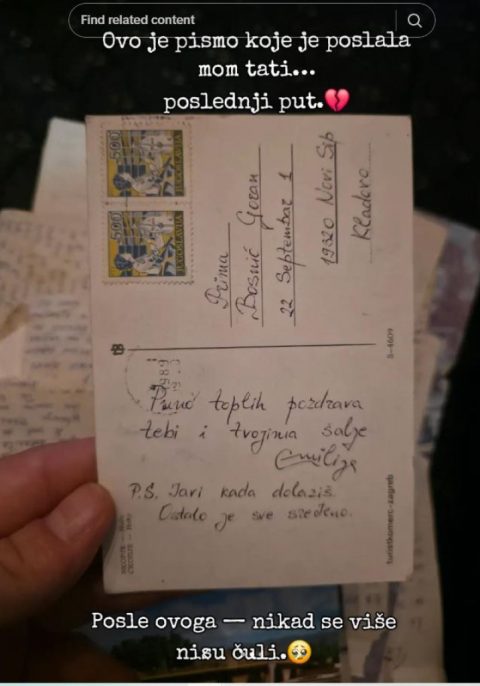 Find related content
Ovo je pismo koje je poslala
mom tati...
poslednji put.💔
500
JUGOSLAVIJA
500
JUGOSLAVIJA
Prima
Bosnić Goran
22 Septembar 1
19320 Novi Sip
Kladovo
S-4609
1989
Puno toplih pozdrava
tebi i tvojima šalje
Emilija
P.S. Javi kada dolaziš.
Ostalo je sve sređeno.
turistkomerc-zagreb
Posle ovoga — nikad se više
nisu čuli.🥺